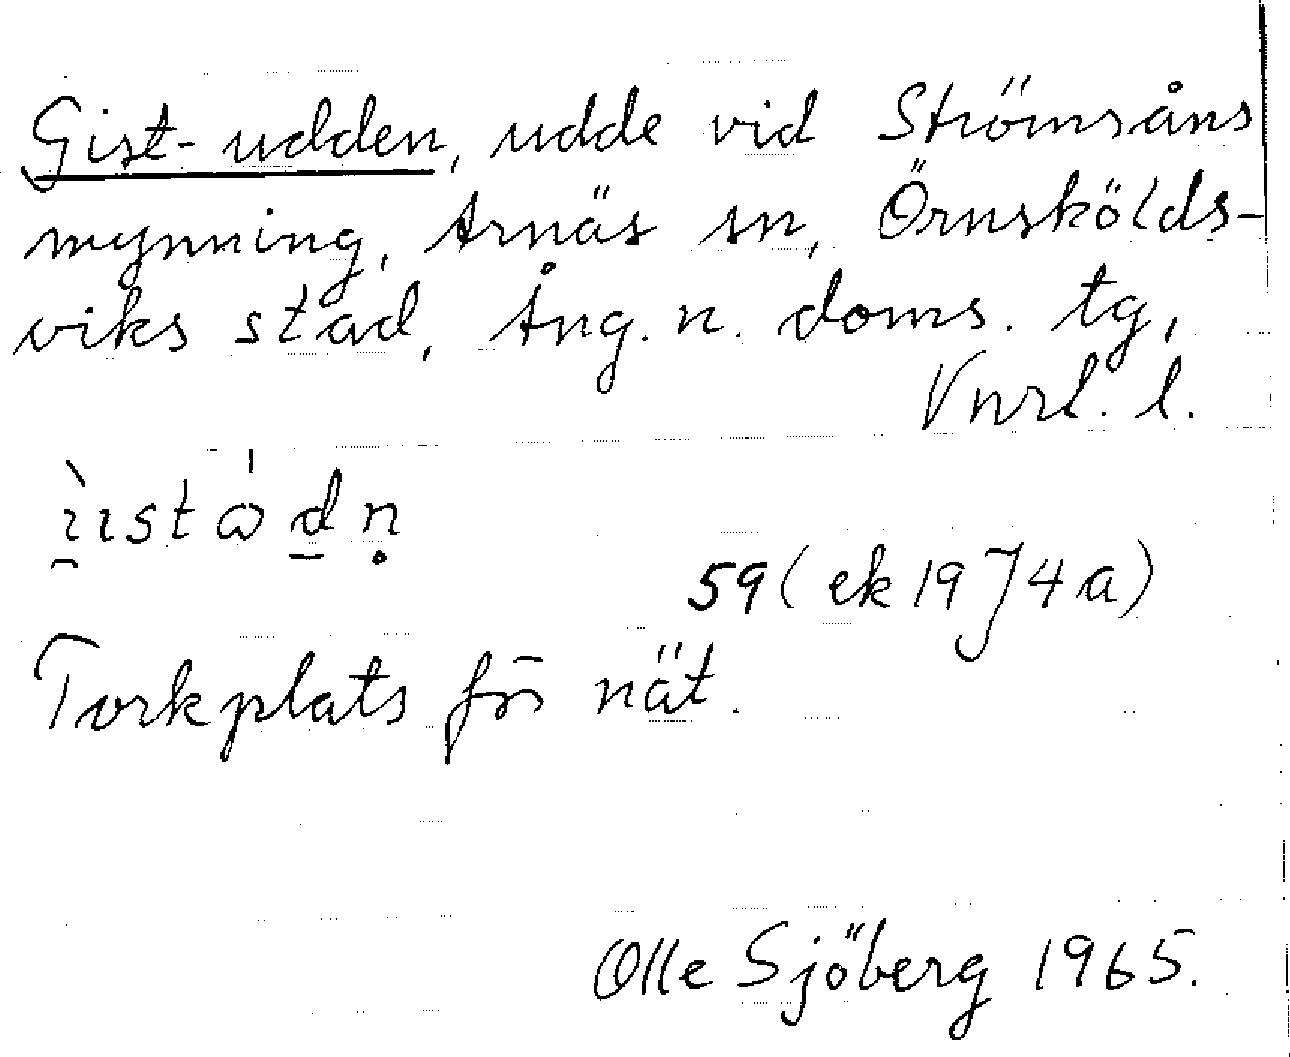 Gist-udden, udde vid Strömsåns
mynning, Arnäs sn, Örnskölds-
viks stad, Ång. n. doms. tg,
Vnrl. l.
59 (ek 19 J 4 a)
Torkplats för nät.
Olle Sjöberg 1965.